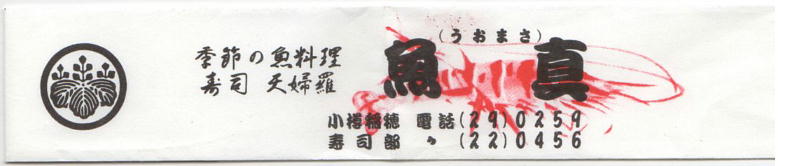 季節の魚料理
寿司 天婦羅
(うおまさ)
魚真
小樽稲穂 電話(29)0259
寿司部 〃(22)0456